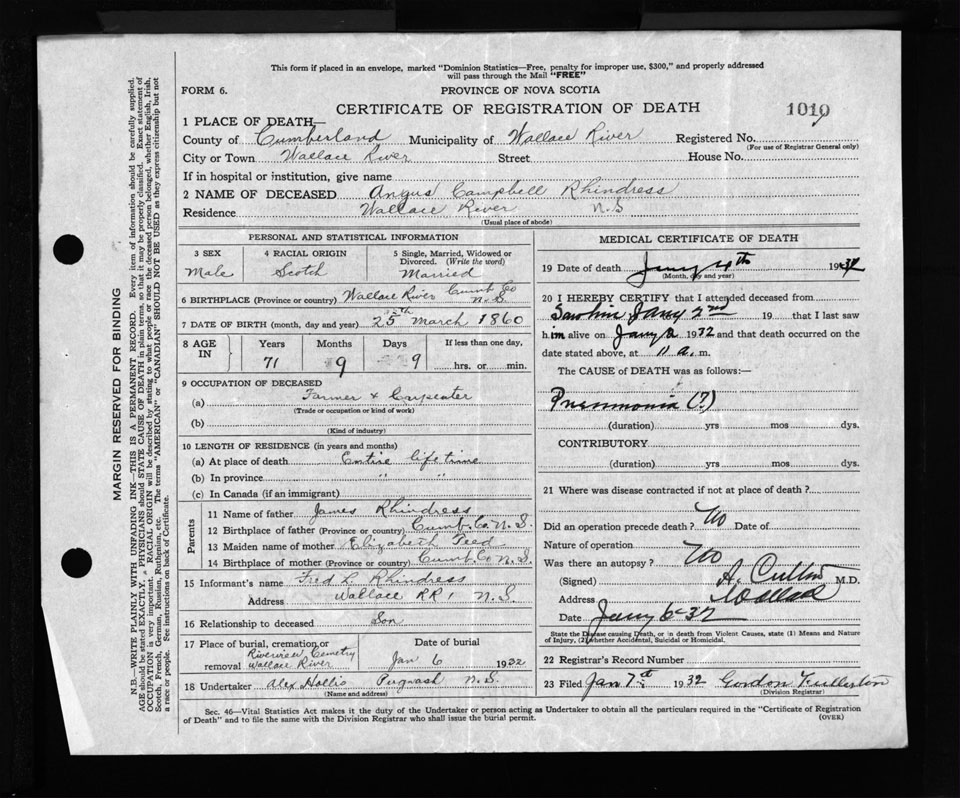 This form if placed in an envelope, marked "Dominion Statistics—Free, penalty for improper use, $300," and properly addressed
will pass through the Mail "FREE"
FORM 6.
PROVINCE OF NOVA SCOTIA
CERTIFICATE OF REGISTRATION OF DEATH
1019
1 PLACE OF DEATH—
County of Cumberland Municipality of Wallace River Registered No.
(For use of Registrar General only)
City or Town Wallace River Street House No.
If in hospital or institution, give name
2 NAME OF DECEASED Angus Campbell Rhindress
Residence Wallace River N.S
(Usual place of abode)
PERSONAL AND STATISTICAL INFORMATION
3 SEX
Male
4 RACIAL ORIGIN
Scotch
5 Single, Married, Widowed or
Divorced. (Write the word)
Married
6 BIRTHPLACE (Province or country) Wallace River Cumb Co
N.S
7 DATE OF BIRTH (month, day and year) 25th March 1860
8 AGE
IN
Years
71
Months
9
Days
9
If less than one day,
hrs. or min.
9 OCCUPATION OF DECEASED
(a) Farmer & Carpenter
(Trade or occupation or kind of work)
(b)
(Kind of industry)
10 LENGTH OF RESIDENCE (in years and months)
(a) At place of death Entire lifetime
(b) In province " "
(c) In Canada (if an immigrant)
Parents
11 Name of father James Rhindress
12 Birthplace of father (Province or country) Cumb. Co. N.S.
13 Maiden name of mother Elizabeth Teed
14 Birthplace of mother (Province or country) Cumb. Co N.S.
15 Informant's name Fred L. Rhindress
Address Wallace RR 1 N.S.
16 Relationship to deceased Son
17 Place of burial, cremation, or
removal Riverview Cemetry
Wallace River
Date of burial
Jan 6 1932
18 Undertaker Alex Hollis Pugwash N.S.
(Name and address)
MEDICAL CERTIFICATE OF DEATH
19 Date of death Jany 4th 1932
(Month, day and year)
20 I HEREBY CERTIFY that I attended deceased from
Saw him Jany 2nd 19 that I last saw
him alive on Jany 2 1932 and that death occurred on the
date stated above, at 11 a. m.
The CAUSE of DEATH was as follows:—
Pneumonia (?)
(duration) yrs mos dys.
CONTRIBUTORY
(duration) yrs mos dys.
21 Where was disease contracted if not at place of death?
Did an operation precede death? No Date of
Nature of operation
Was there an autopsy? No
(Signed) A. M.D.
Address Wallace
Date Jany 6-32
State the Disease causing Death, or in death from Violent Causes, state (1) Means and Nature
of Injury, (2) whether Accidental, Suicidal or Homicidal.
22 Registrar's Record Number
23 Filed Jan 7th 1932 Gordon Fullerton
(Division Registrar)
Sec. 46—Vital Statistics Act makes it the duty of the Undertaker or person acting as Undertaker to obtain all the particulars required in the "Certificate of Registration
of Death" and to file the same with the Division Registrar who shall issue the burial permit.
(OVER)
MARGIN RESERVED FOR BINDING
N.B.—WRITE PLAINLY WITH UNFADING INK—THIS IS A PERMANENT RECORD. Every item of information should be carefully supplied.
AGE should be stated EXACTLY. PHYSICIANS should STATE CAUSE OF DEATH in plain terms, so that it may be properly classified. Exact statement of
OCCUPATION is very important. RACIAL ORIGIN will be described by stating to what people or race the deceased person belonged, whether English, Irish,
Scotch, French, German, Russian, Ruthenian, etc. The terms "AMERICAN" or "CANADIAN" SHOULD NOT BE USED as they express citizenship but not
a race or people. See instructions on back of Certificate.